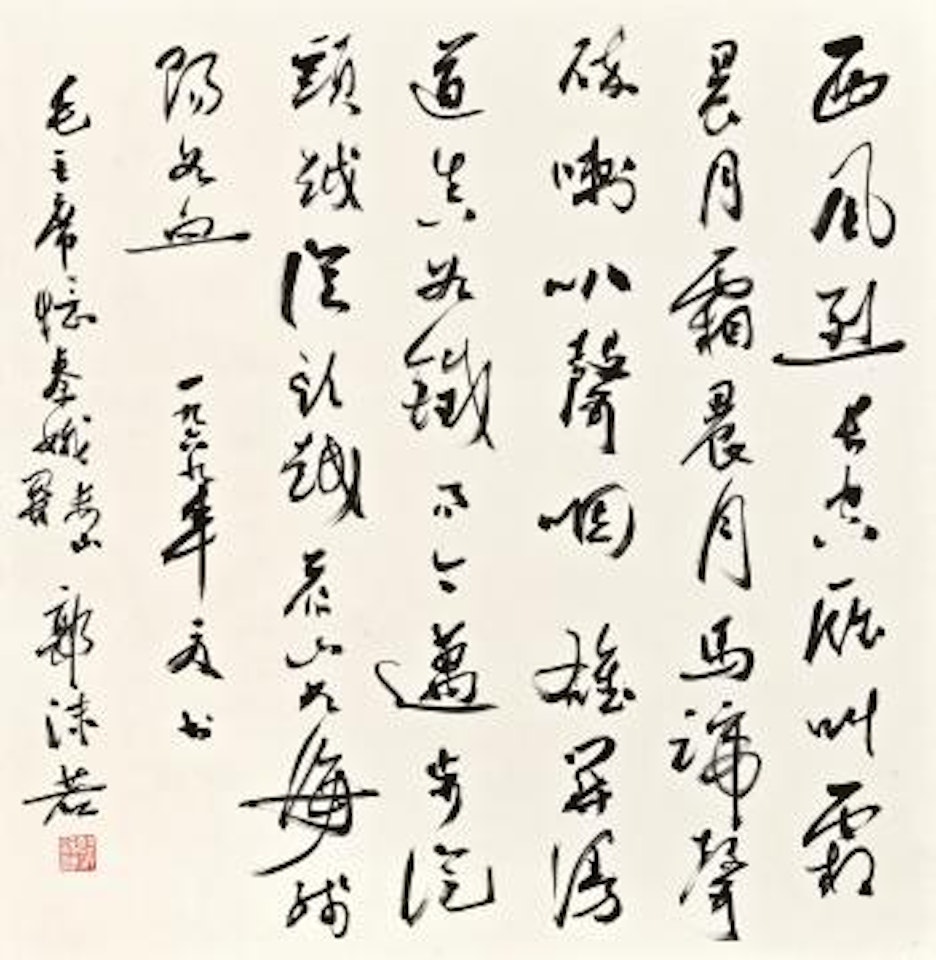 西風烈長空雁叫霜
晨月霜晨月馬蹄聲
碎喇叭聲咽雄關漫
道真如鐵而今邁步從
頭越從頭越蒼山如海殘
陽如血 一九六九年夏书
毛主席憶秦娥婁山關 郭沫若